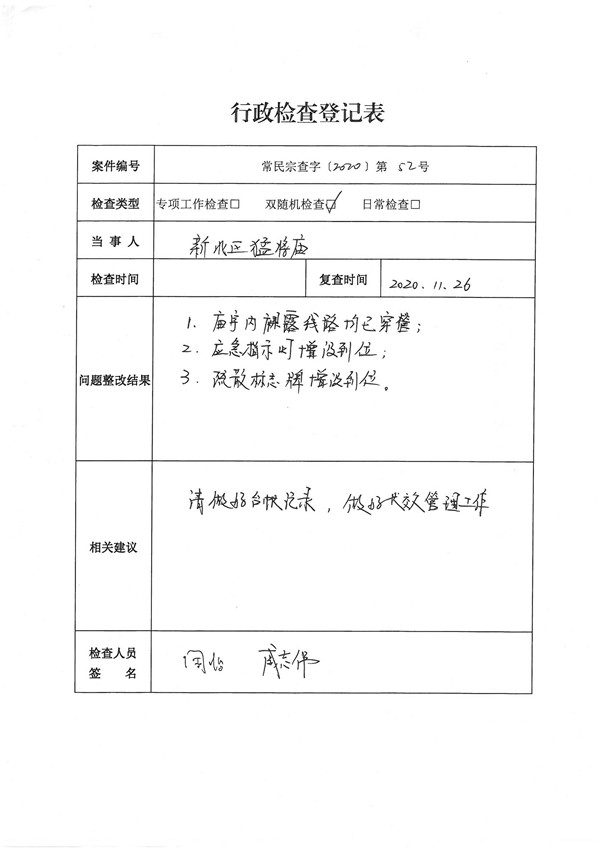 行政检查登记表
案件编号 常民宗查字〔2020〕第 52号
检查类型 专项工作检查□ 双随机检查☑ 日常检查□
当事人 新北区猛将庙
检查时间 复查时间 2020.11.26
问题整改结果
1. 庙宇内裸露线路均已穿管；
2. 应急指示灯增设到位；
3. 疏散标志牌增设到位。
相关建议
请做好台帐记录，做好长效管理工作
检查人员
签名
志伟